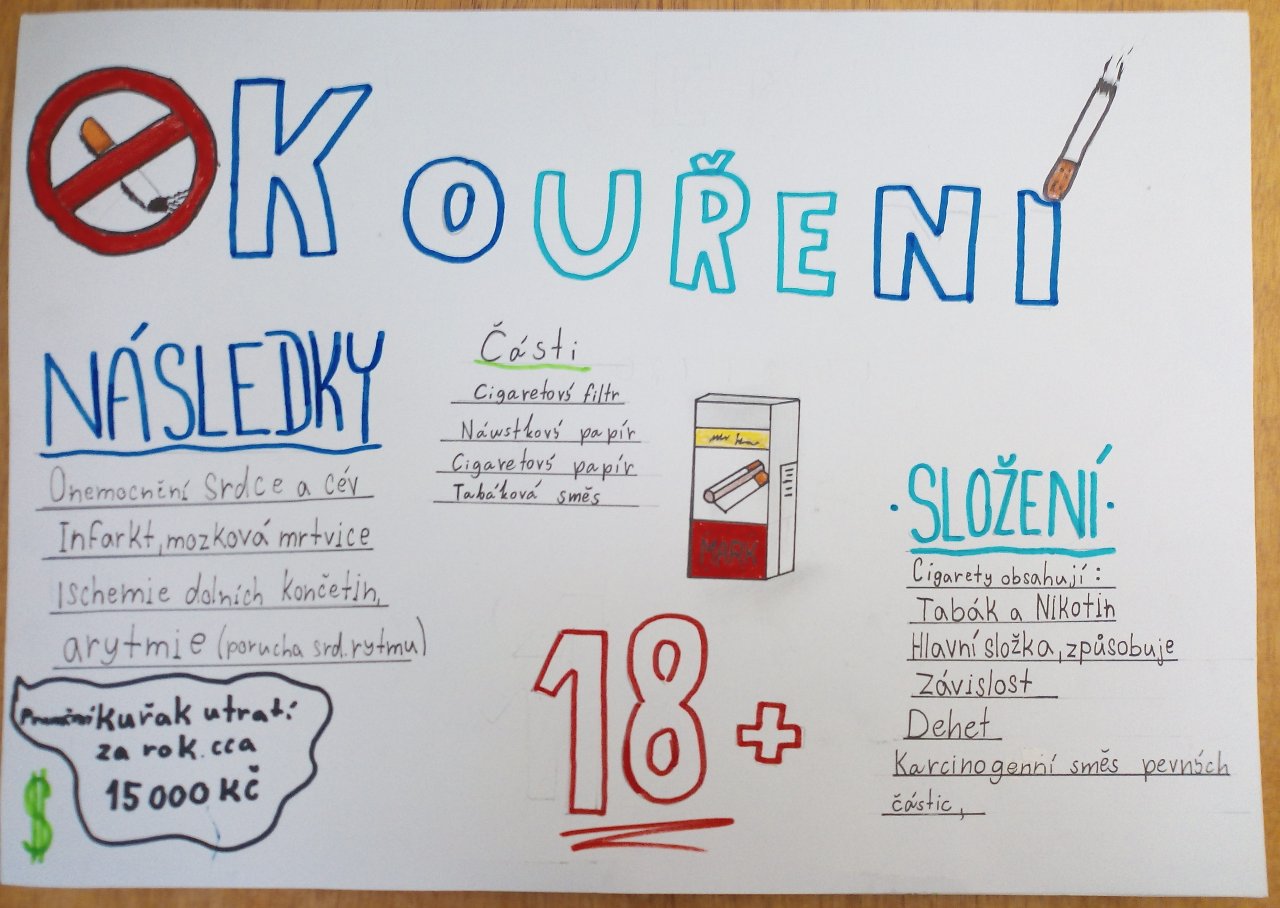 KOUŘENÍ
NÁSLEDKY
Onemocnění srdce a cév
Infarkt, mozková mrtvice
Ischemie dolních končetin,
arytmie (porucha srd. rytmu)
Průměrný Kuřák utratí
za rok cca
15 000 Kč
$
Části
Cigaretový filtr
Náwstkový papír
Cigaretový papír
Tabáková směs
MARK
18+
SLOŽENÍ
Cigarety obsahují:
Tabák a Nikotin
Hlavní složka, způsobuje
závislost
Dehet
Karcinogenní směs pevných
částic,